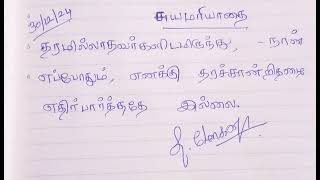 30/12/24
சுயமரியாதை
தரமில்லாதவர்களிடமிருந்து, - நான்
எப்போதும், எனக்கு தரச்சான்றிதழை
எதிர்பார்த்ததே இல்லை.